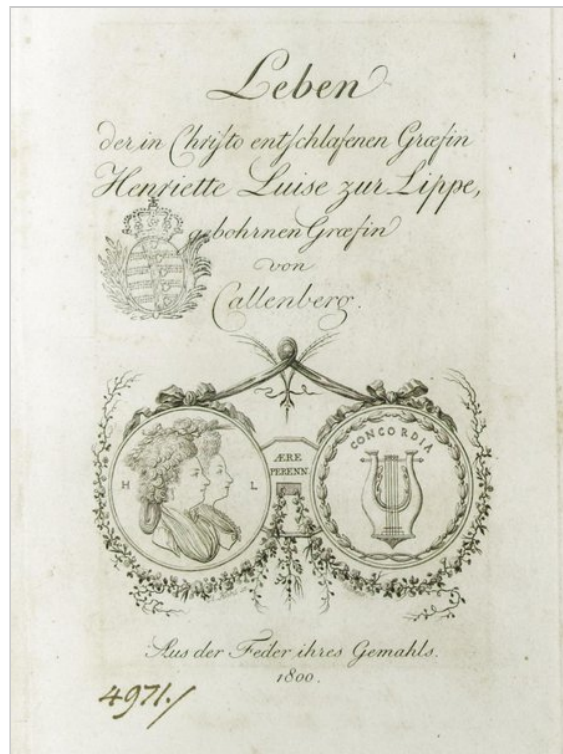 Leben
der in Chriſto entſchlafenen Græfin
Henriette Luise zur Lippe,
gebohrnen Græfin
von
Callenberg.
H L
ÆRE
PERENN.
CONCORDIA
Aus der Feder ihres Gemahls.
1800.
4971./